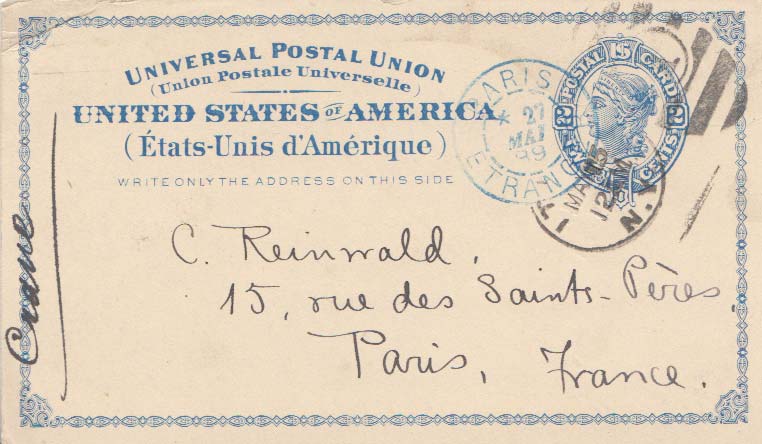 UNIVERSAL POSTAL UNION
(Union Postale Universelle)
UNITED STATES OF AMERICA
(États-Unis d'Amérique)
WRITE ONLY THE ADDRESS ON THIS SIDE
POSTAL CARD
2 CENTS 2
PARIS
* 27
MAI
89
ETRANG
MA 15
12 M
N.Y.
C. Reinwald,
15, rue des Saints-Pères
Paris, France.
Crane